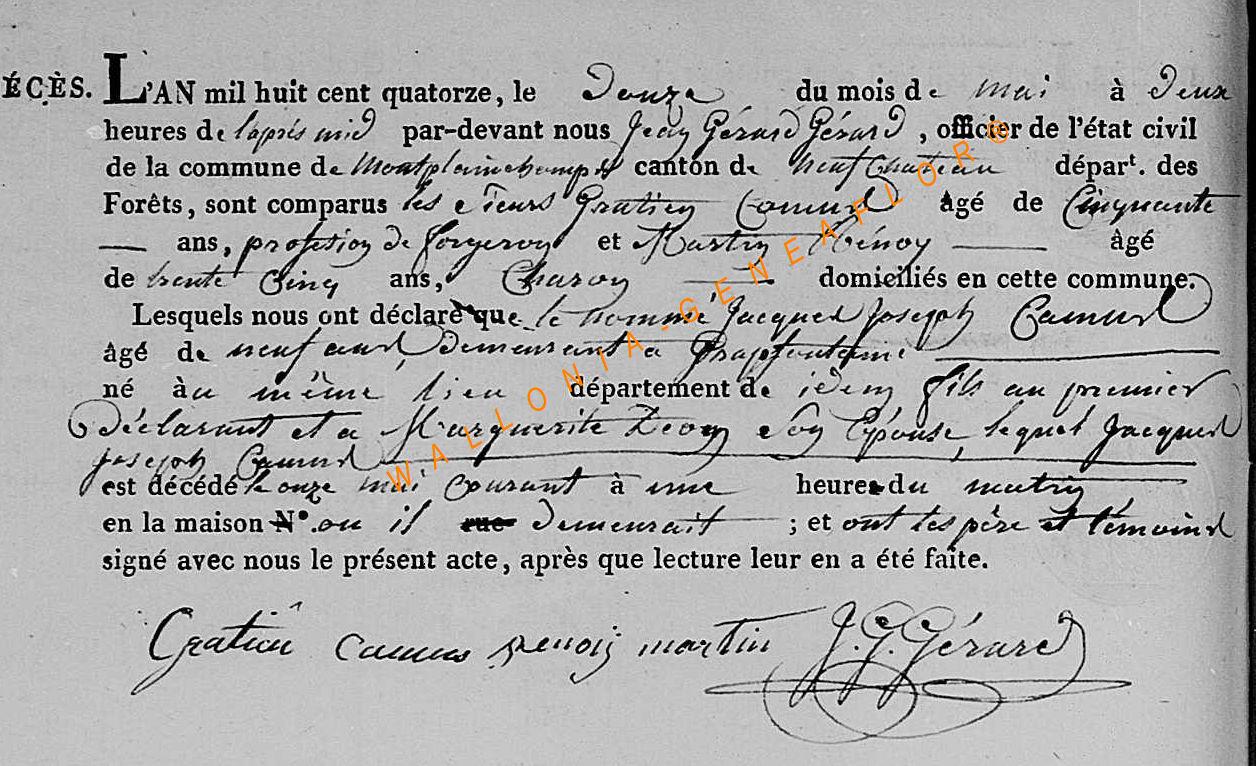 ÉCÈS. L'AN mil huit cent quatorze, le Douze du mois de mai à Deux
heures de l'aprés mid par-devant nous Jean Gérard Gérard, officier de l'état civil
de la commune de Montplainchamps canton de neufchateau départ. des
Forêts, sont comparus les Sieurs Gratien Camus âgé de Cinquante
ans, profession de forgeron et Martin âgé
de trente Cinq ans, Charon domiciliés en cette commune.
Lesquels nous ont déclaré que le nommé Jacques Joseph Camus
âgé de neuf ans, Demeurant a Grapfontaine
né àu même lieu département de idem fils au premier
Déclarant et a Marguerite son Epouse, lequel Jacques
Joseph Camus
est décédé le onze mai courant à une heure du matin
en la maison N°. ou il rue Demeurait ; et ont les père et témoins
signé avec nous le présent acte, après que lecture leur en a été faite.
Gratien camus martin J. G. Gérard
WALLONIA-GENEAFLOR®